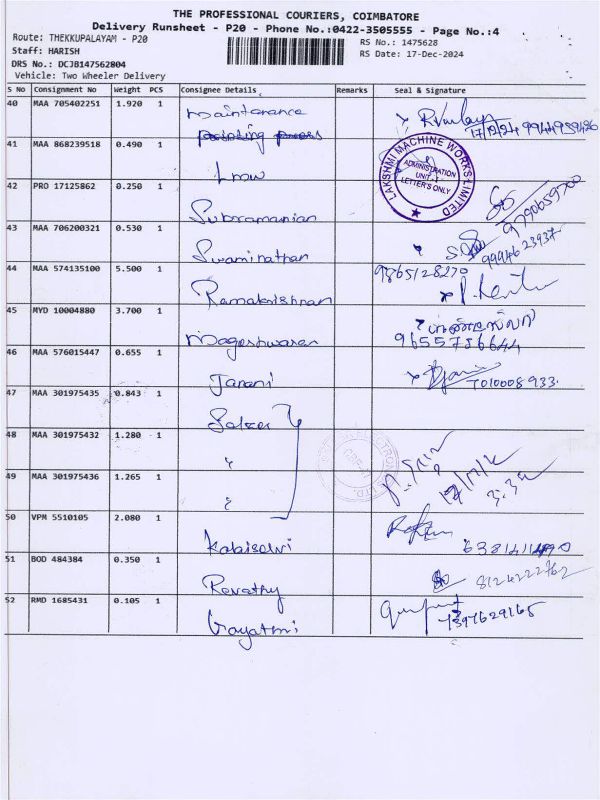 THE PROFESSIONAL COURIERS, COIMBATORE
Delivery Runsheet - P20 - Phone No.:0422-3505555 - Page No.:4
Route: THEKKUPALAYAM - P20
RS No.: 1475628
Staff: HARISH
RS Date: 17-Dec-2024
DRS No.: DCJB147562804
Vehicle: Two Wheeler Delivery
S No Consignment No Weight PCS Consignee Details Remarks Seal & Signature
40 MAA 705402251 1.920 1 Maintanance
17/12/24
41 MAA 868239518 0.490 1 Lmw
LAKSHMI MACHINE WORKS LIMITED
ADMINISTRATION
UNIT
LETTER'S ONLY
42 PRO 17125862 0.250 1 Subramanian
9790659700
43 MAA 706200321 0.530 1 Swaminathan
9994623937
44 MAA 574135100 5.500 1 Ramakrishnan
9865128270
45 MYD 10004880 3.700 1 Mageshwaran
9655786644
46 MAA 576015447 0.655 1 Janani
7010008933
47 MAA 301975435 0.843 1
48 MAA 301975432 1.280 1 "
49 MAA 301975436 1.265 1 "
50 VPM 5510105 2.080 1 Kalaiselvi
51 BOD 484384 0.350 1 Revathy
8124222762
52 RMD 1685431 0.105 1 Gayathri
7397629165